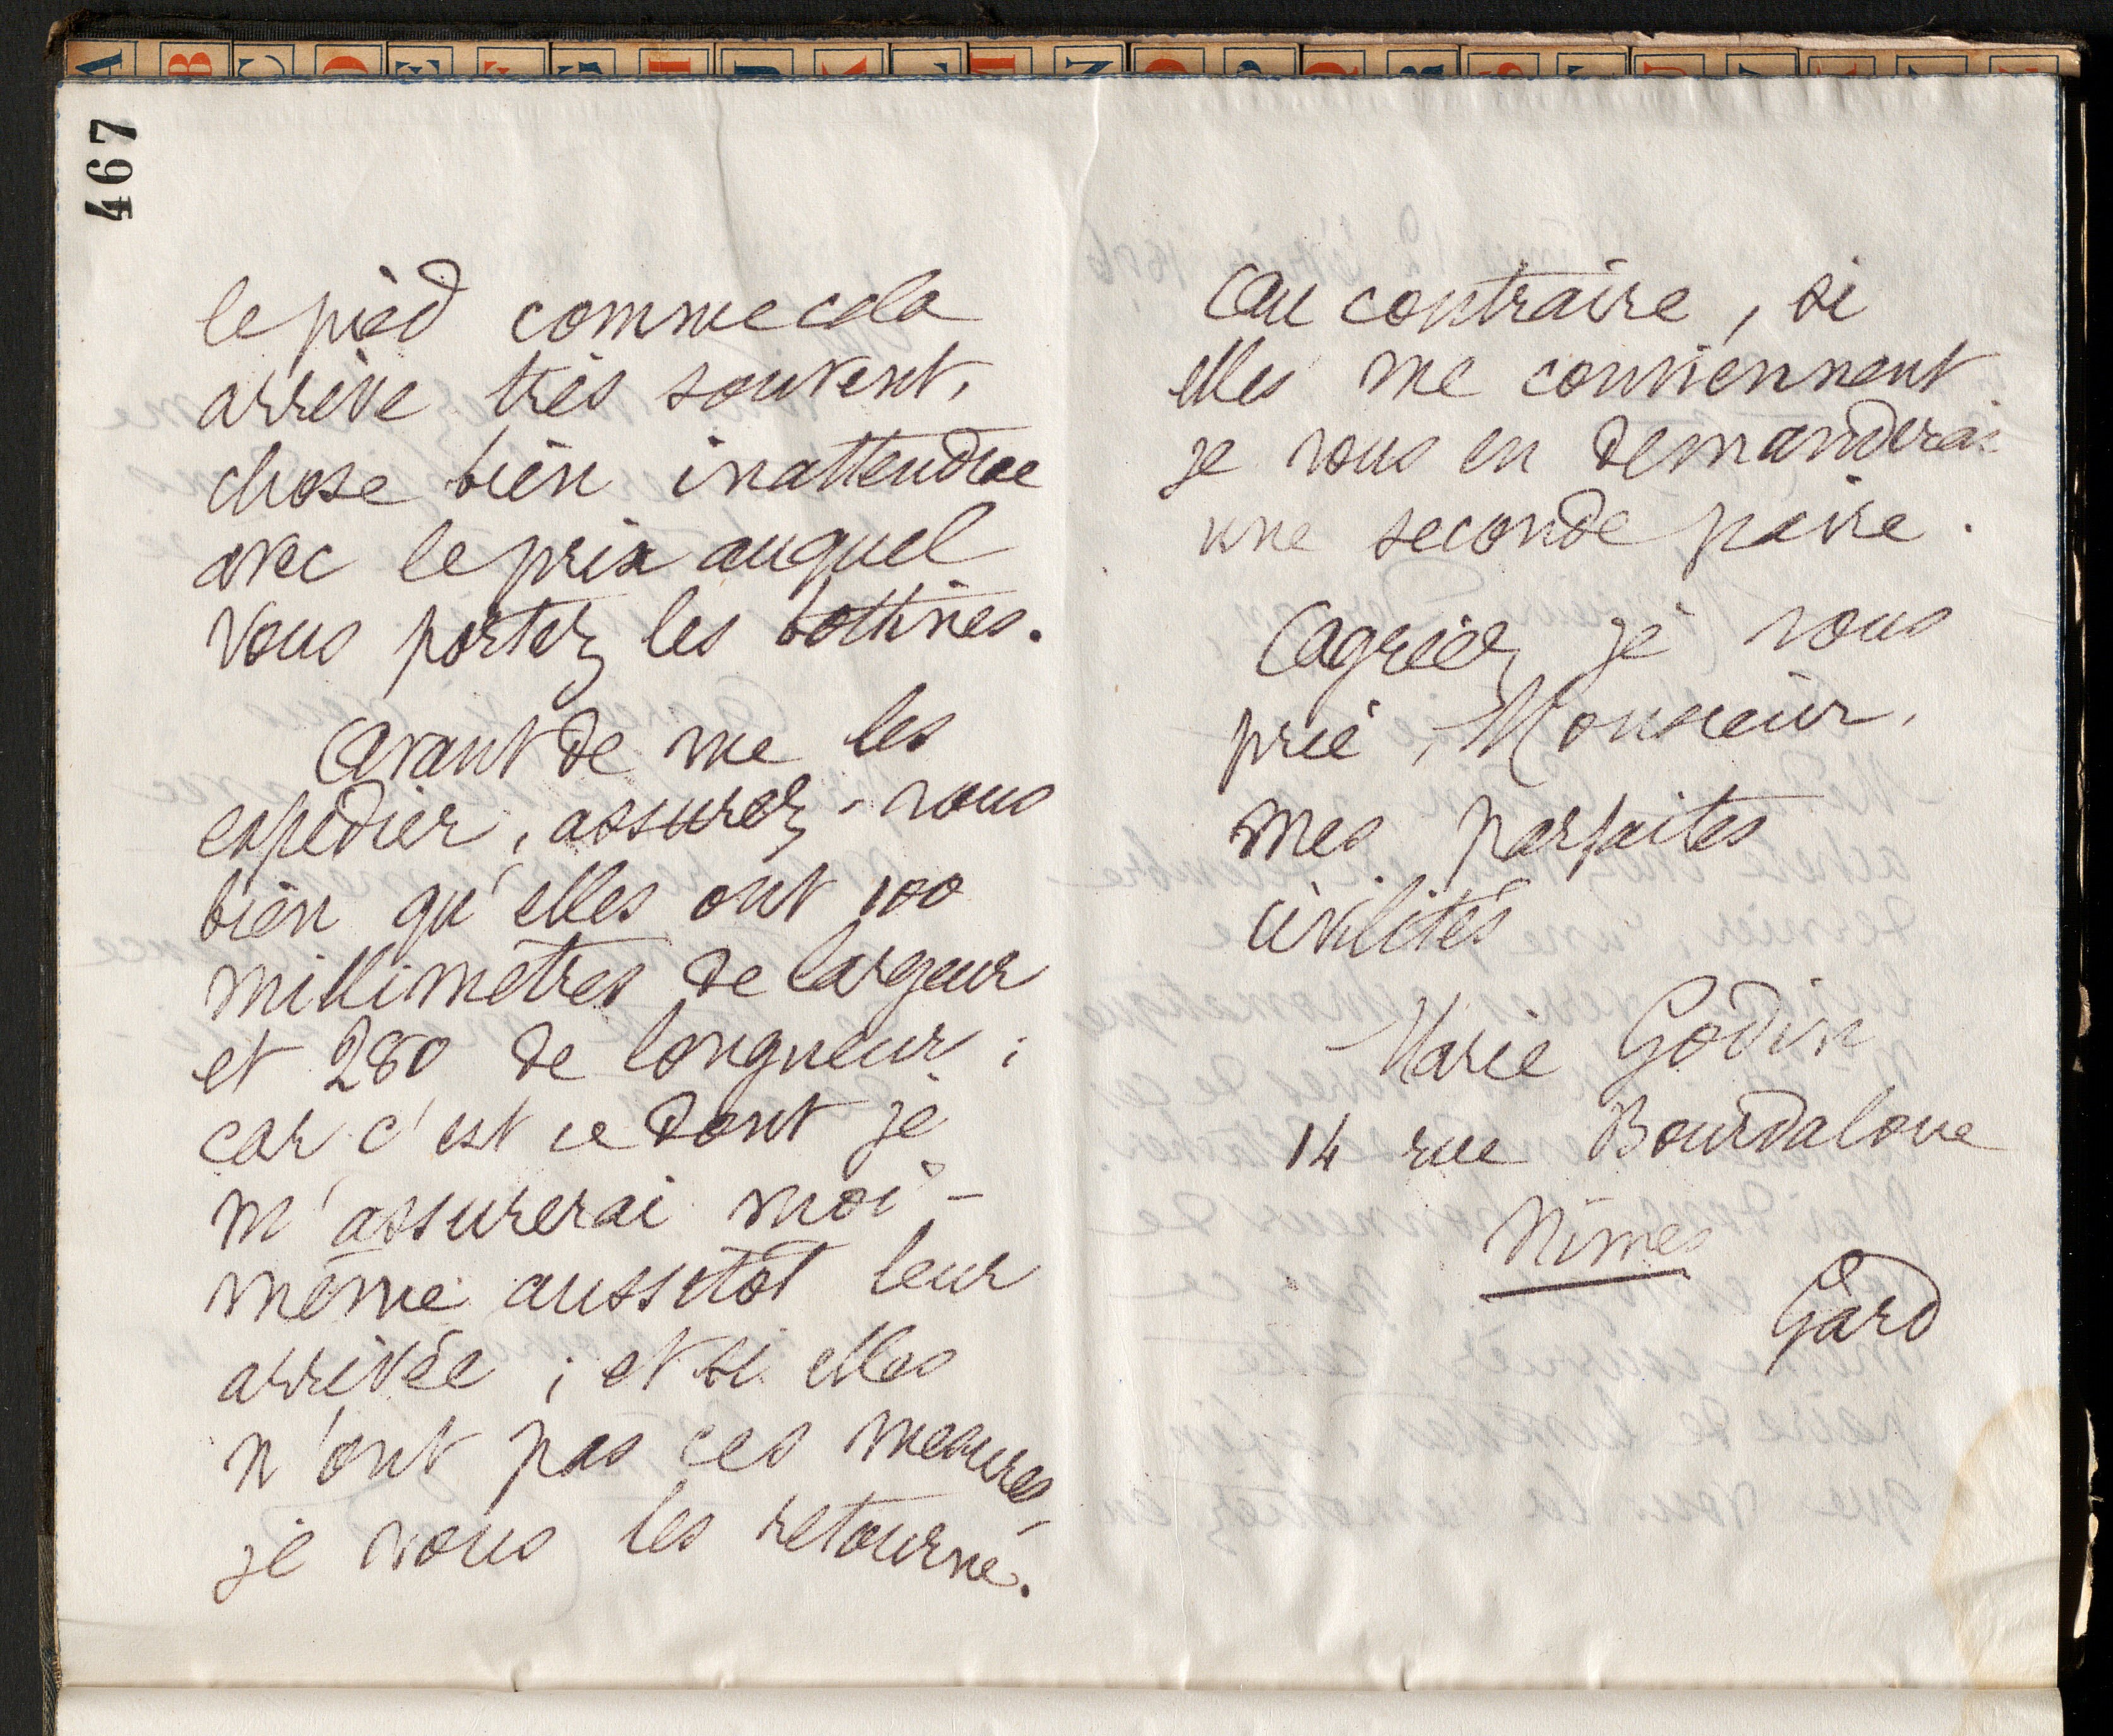 467
le pied comme cela
arrive très souvent,
chose bien inattendue
avec le prix auquel
vous portez les bottines.
Avant de me les
expédier, assurez-vous
bien qu'elles ont 100
millimètres de largeur
et 280 de longueur ;
car c'est ce dont je
m'assurerai moi-
même aussitôt leur
arrivée ; et si elles
n'ont pas ces mesures,
je vous les retourne.
Au contraire, si
elles me conviennent
je vous en demanderai
une seconde paire.
Agréez je vous
prie, Monsieur,
mes parfaites
civilités
Marie Godin
14 rue Bourdaloue
Nîmes
Gard